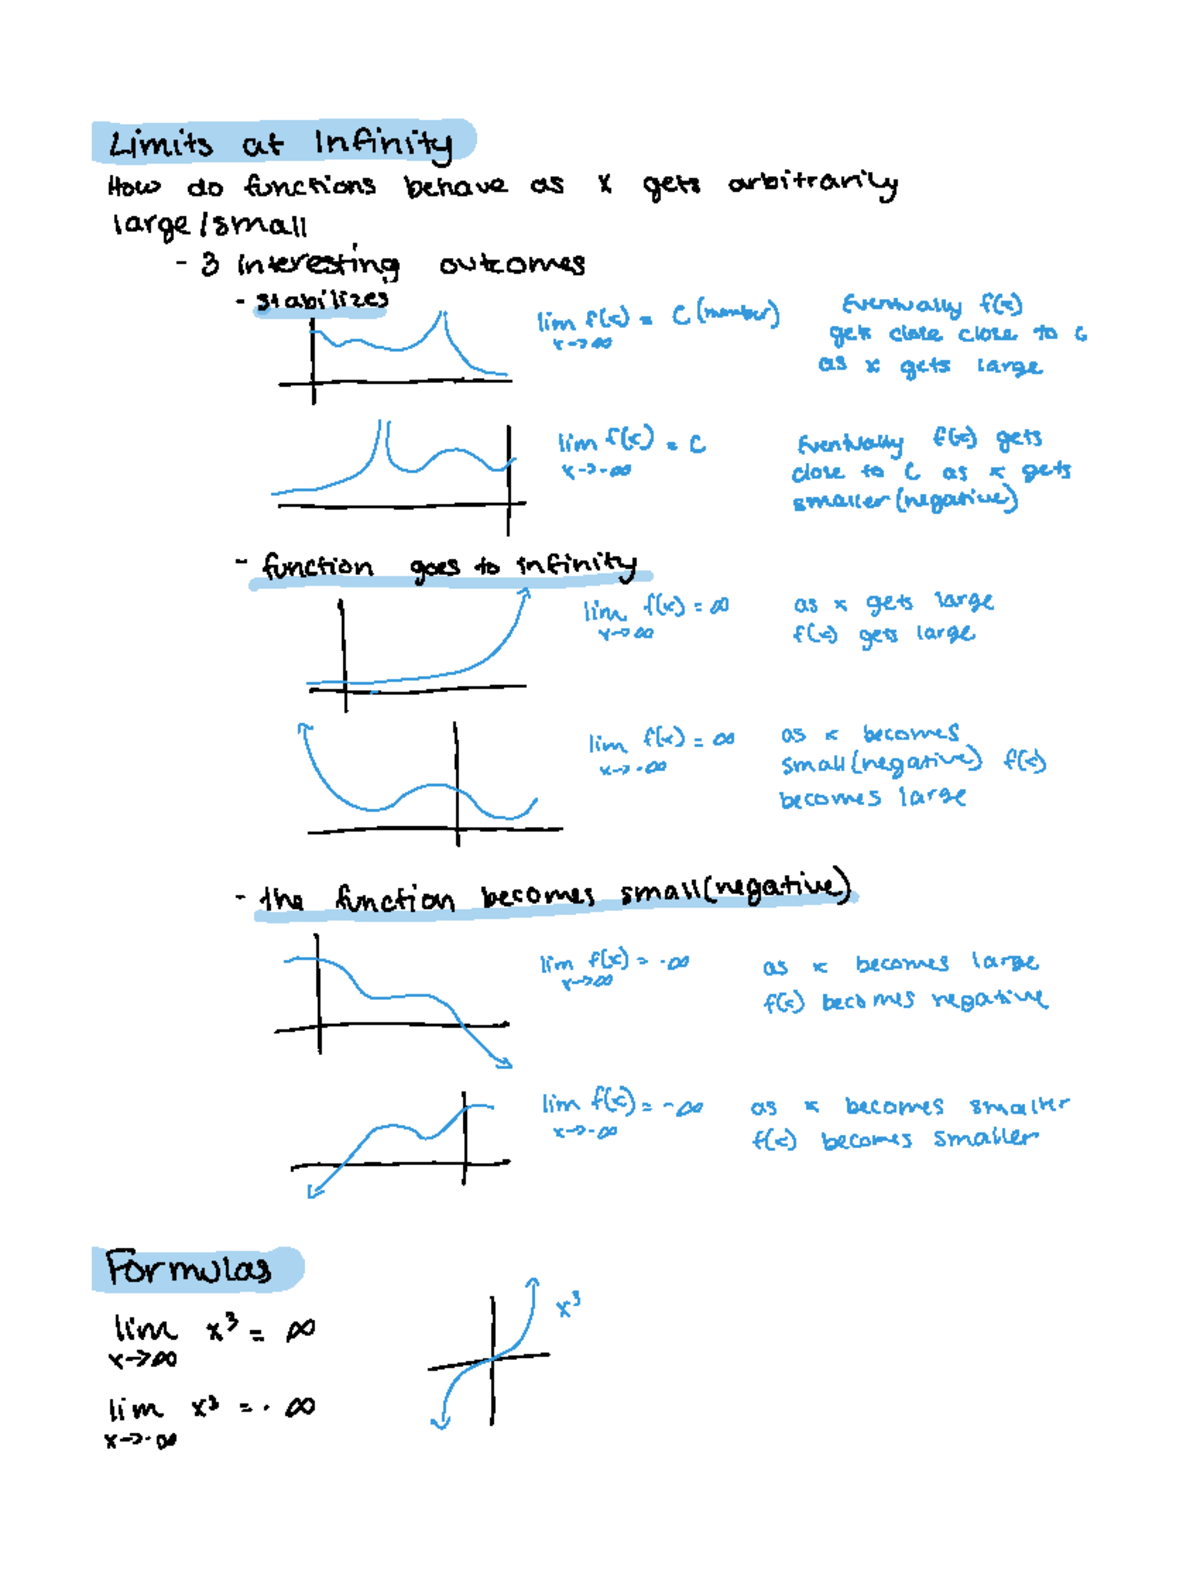 Limits at Infinity
How do functions behave as x gets arbitrarily
large/small
- 3 interesting outcomes
- stabilizes
lim f(x) = C (number)
x→∞
Eventually f(x)
gets close close to C
as x gets large
lim f(x) = C
x→-∞
Eventually f(x) gets
close to C as x gets
smaller (negative)
- function goes to infinity
lim f(x) = ∞
x→∞
as x gets large
f(x) gets large
lim f(x) = ∞
x→-∞
as x becomes
small (negative) f(x)
becomes large
- the function becomes small (negative)
lim f(x) = -∞
x→∞
as x becomes large
f(x) becomes negative
lim f(x) = -∞
x→-∞
as x becomes smaller
f(x) becomes smaller
Formulas
lim x³ = ∞
x→∞
x³
lim x³ = -∞
x→-∞